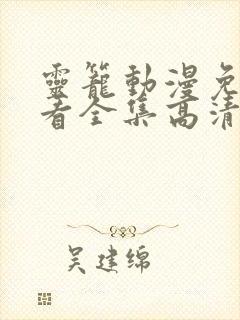 靈籠動漫免
看全集高清
吴建绵